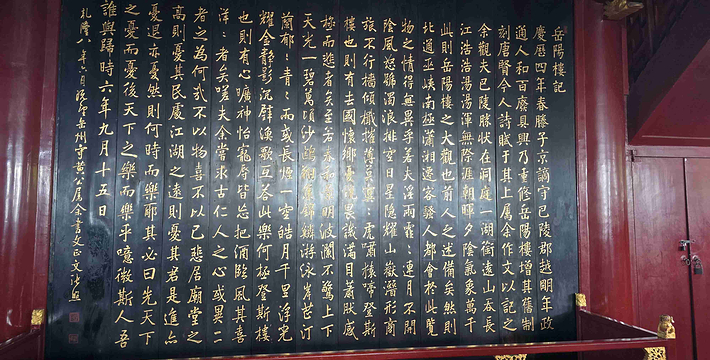 岳陽樓記
慶曆四年春滕子京謫守巴陵郡越明年政
通人和百廢具興乃重修岳陽樓增其舊制
刻唐賢今人詩賦于其上屬余作文以記之
余觀夫巴陵勝狀在洞庭一湖銜遠山吞長
江浩浩湯湯渾無際涯朝暉夕陰氣象萬千
此則岳陽樓之大觀也前人之述備矣然則
北通巫峽南極瀟湘遷客騷人都會於此覽
物之情得無異乎若夫淫雨霏霏連月不開
陰風怒號濁浪排空日星隱耀山嶽潛形商
旅不行檣傾檝摧薄暮冥冥虎嘯猿啼登斯
樓也則有去國懷鄉憂讒畏譏滿目蕭然感
極而悲者矣至若春和景明波瀾不驚上下
天光一碧萬頃沙鷗翔集錦鱗游泳岸芷汀
蘭郁郁青青而或長煙一空皓月千里浮光
耀金靜影沉璧漁歌互答此樂何極登斯樓
也則有心曠神怡寵辱皆忘把酒臨風其喜
洋洋者矣嗟夫余嘗求古仁人之心或異二
者之為何哉不以物喜不以己悲居廟堂之
高則憂其民處江湖之遠則憂其君是進亦
憂退亦憂然則何時而樂耶其必曰先天下
之憂而憂後天下之樂而樂乎噫微斯人吾
誰與歸時六年九月十五日
乾隆八年 月既望岳州守黃公屬余書文正文張照